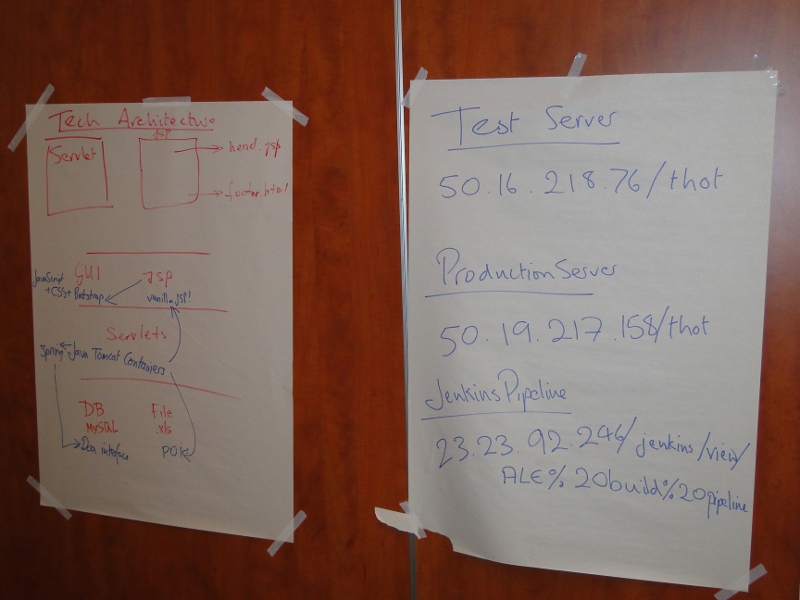 Tech Architecture
JSP
Servlet
head.jsp
footer.html
GUI
JSP
JavaScript
+ CSS + Bootstrap
vanilla JSP!
Servlets
Spring
Java Tomcat Containers
DB
MySQL
File
.xls
interface
POI
Test Server
50.16.218.76/thot
Production Server
50.19.217.158/thot
Jenkins Pipeline
23.23.92.246/jenkins/view/
ALE%20build%20pipeline